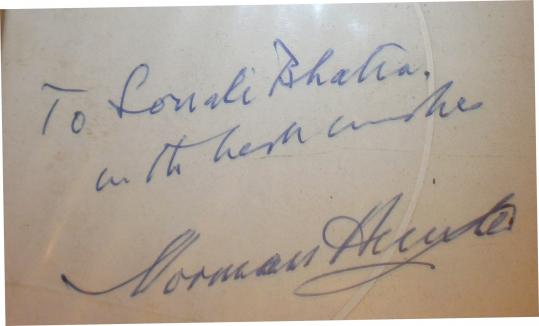 To Sonali Bhatia.
with best wishes
Norman Hunter